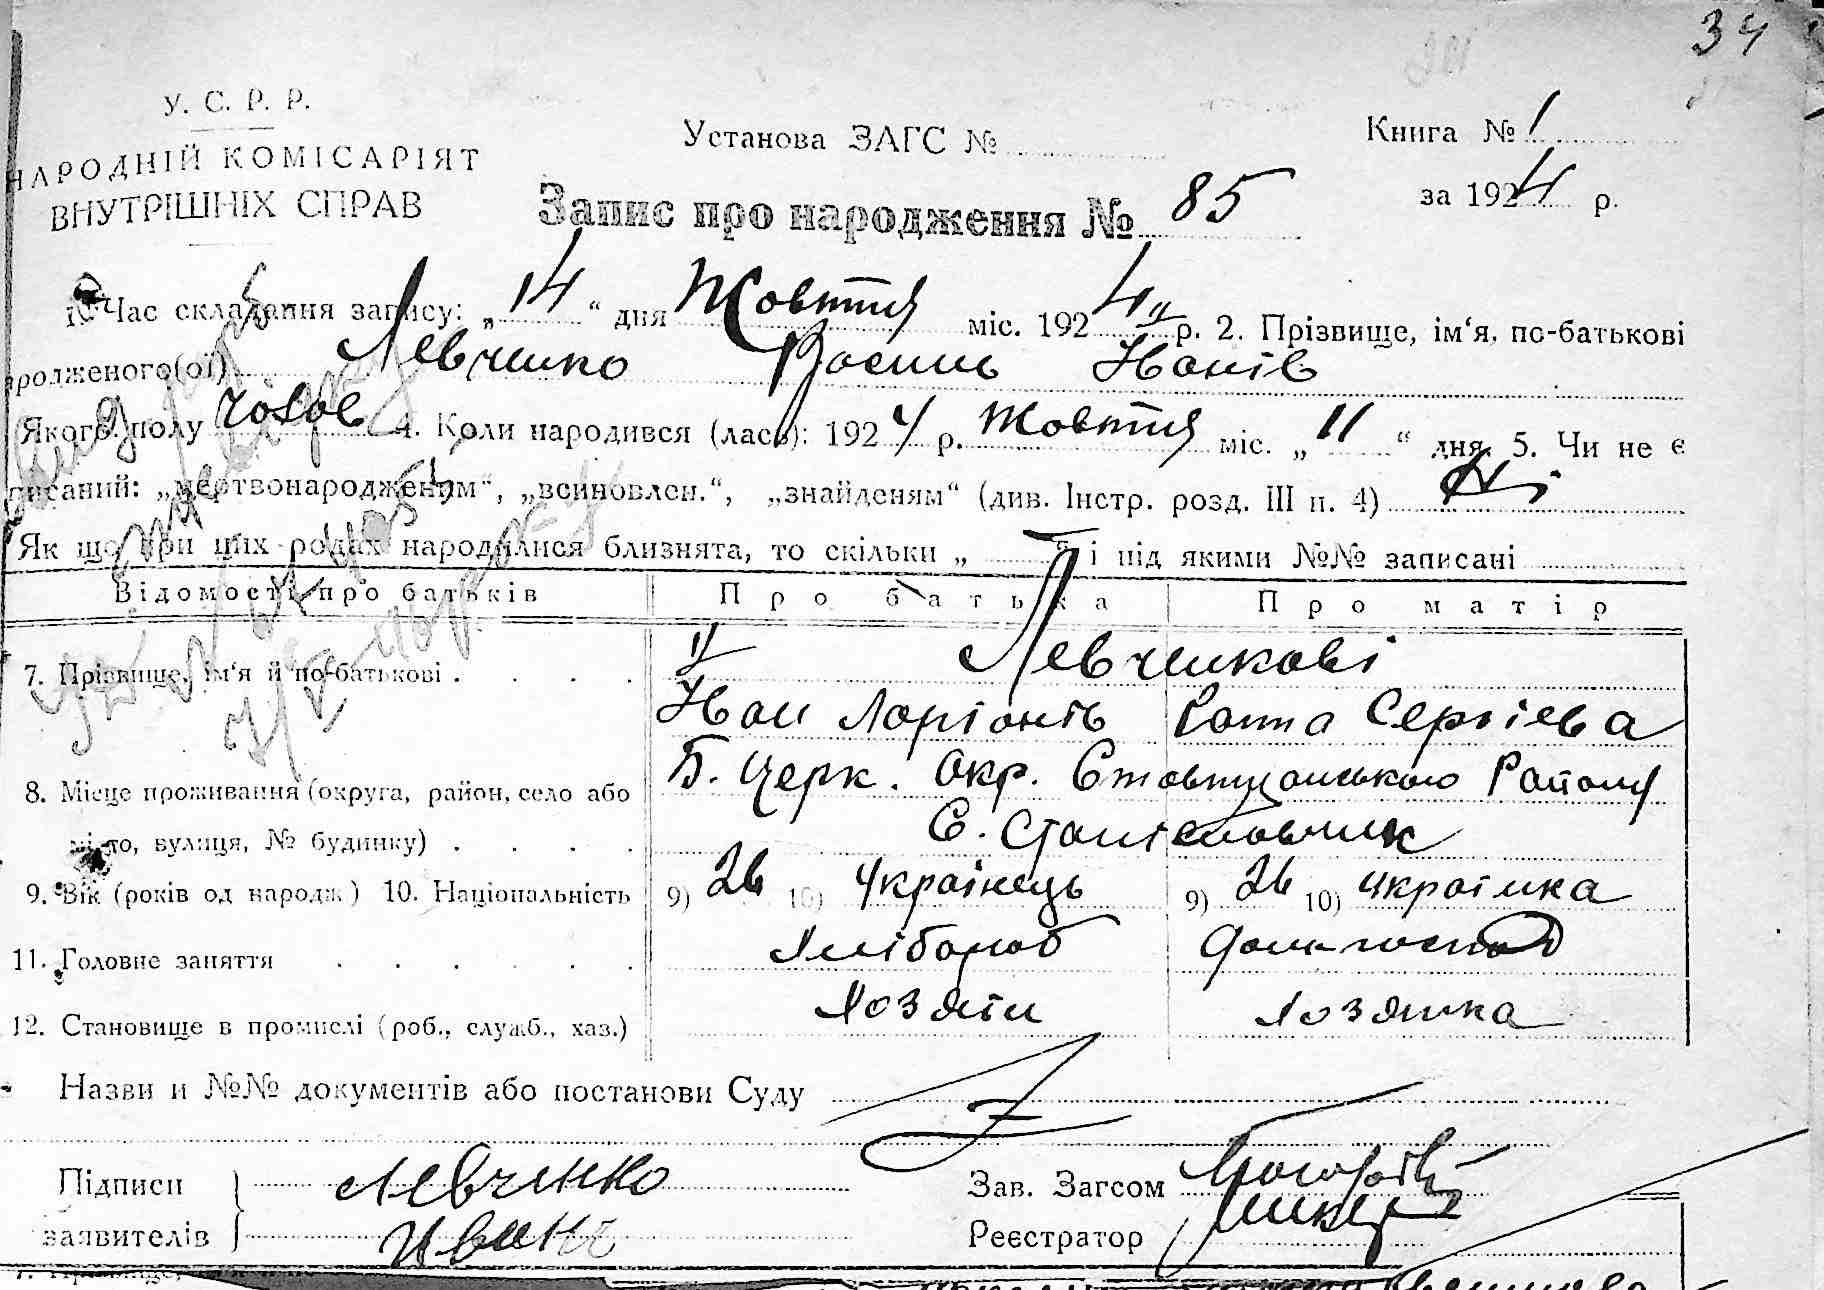 34
У. С. Р. Р.
НАРОДНІЙ КОМІСАРІЯТ
ВНУТРІШНІХ СПРАВ
Установа ЗАГС №
Книга № 1
за 1924 р.
Запис про народження № 85
Час складання запису: „14“ дня Жовтня міс. 1924 р. 2. Прізвище, ім‘я, по-батькові
родженого(ої) Левченко Василь Іванів
Якого полу чолов 4. Коли народився (лась): 1924 р. жовтня міс. „11“ дня. 5. Чи не є
писаний: „мертвонародженим“, „всиновлен.“, „знайденям“ (див. Інстр. розд. III п. 4) Ні
Як що при цих родах народилися близнята, то скільки „ “ і під якими №№ записані
Відомості про батьків Про батька Про матір
7. Прізвище, ім‘я й по-батькові . . . . Левченкові
Іван Ларіонів Ганна Сергієва
8. Місце проживання (округа, район, село або Б. Церк. Окр. Ставищанського Району
місто, вулиця, № будинку) . . . . С. Станіславчик
9. Вік (років од народж.) 10. Національність 9) 26 10) Українець 9) 26 10) Українка
11. Головне заняття . . . . . . Хлібороб Дом. господ
12. Становище в промислі (роб., служб., хаз.) Хозяїн Хозяйка
Назви и №№ документів або постанови Суду
Підписи Левченко Зав. Загсом
заявителів Иван Реєстратор